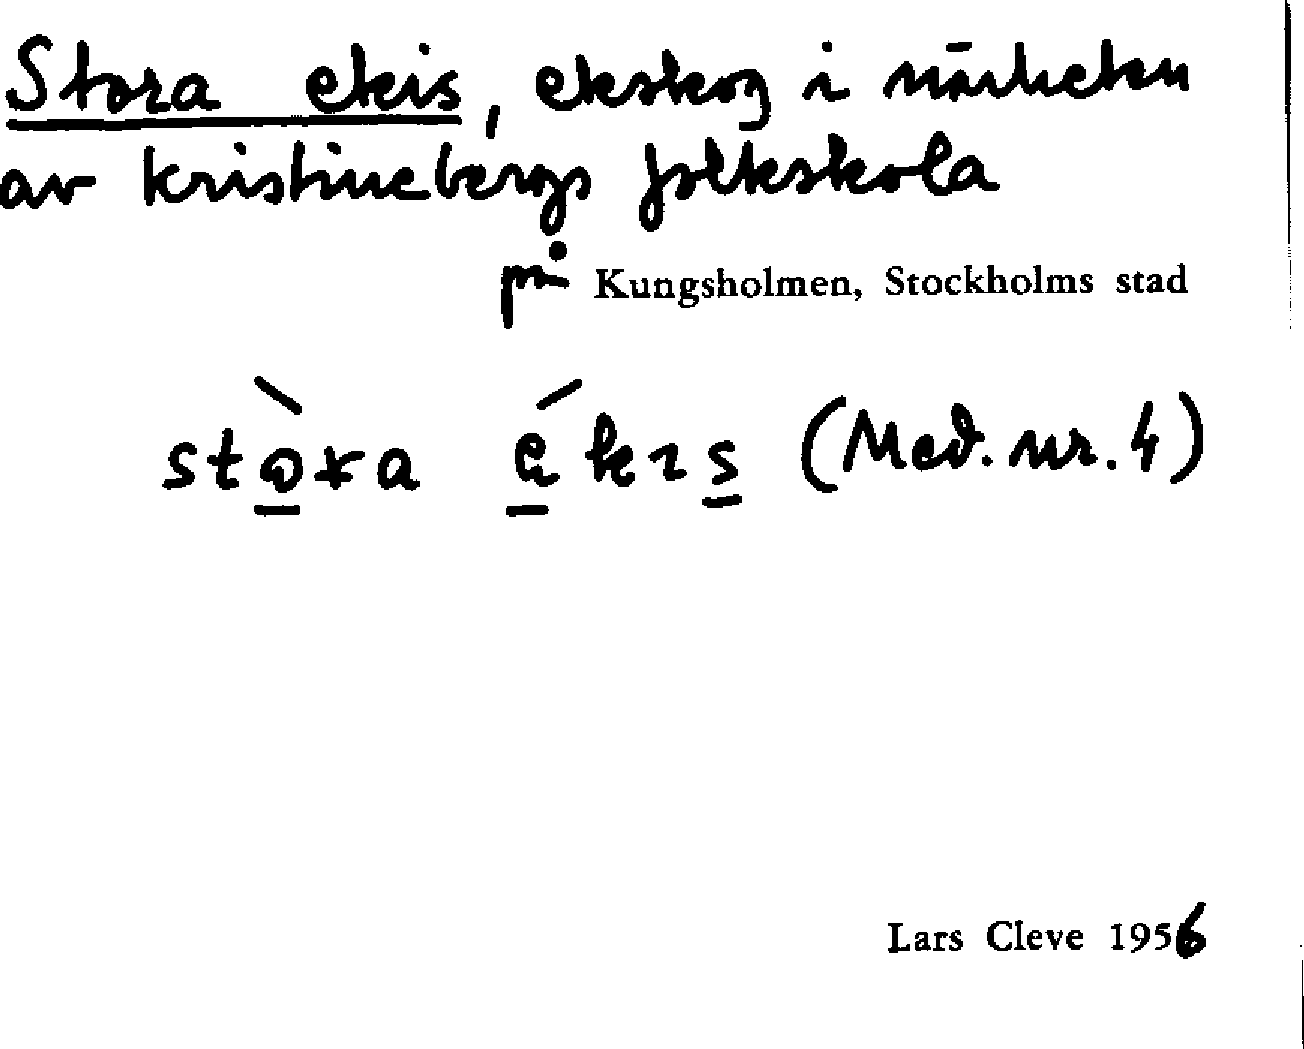 Stora ekis, ekskog i närheten
av Kristinebergs folkskola
på Kungsholmen, Stockholms stad
stora ekis (Med. nr. 4)
Lars Cleve 1956